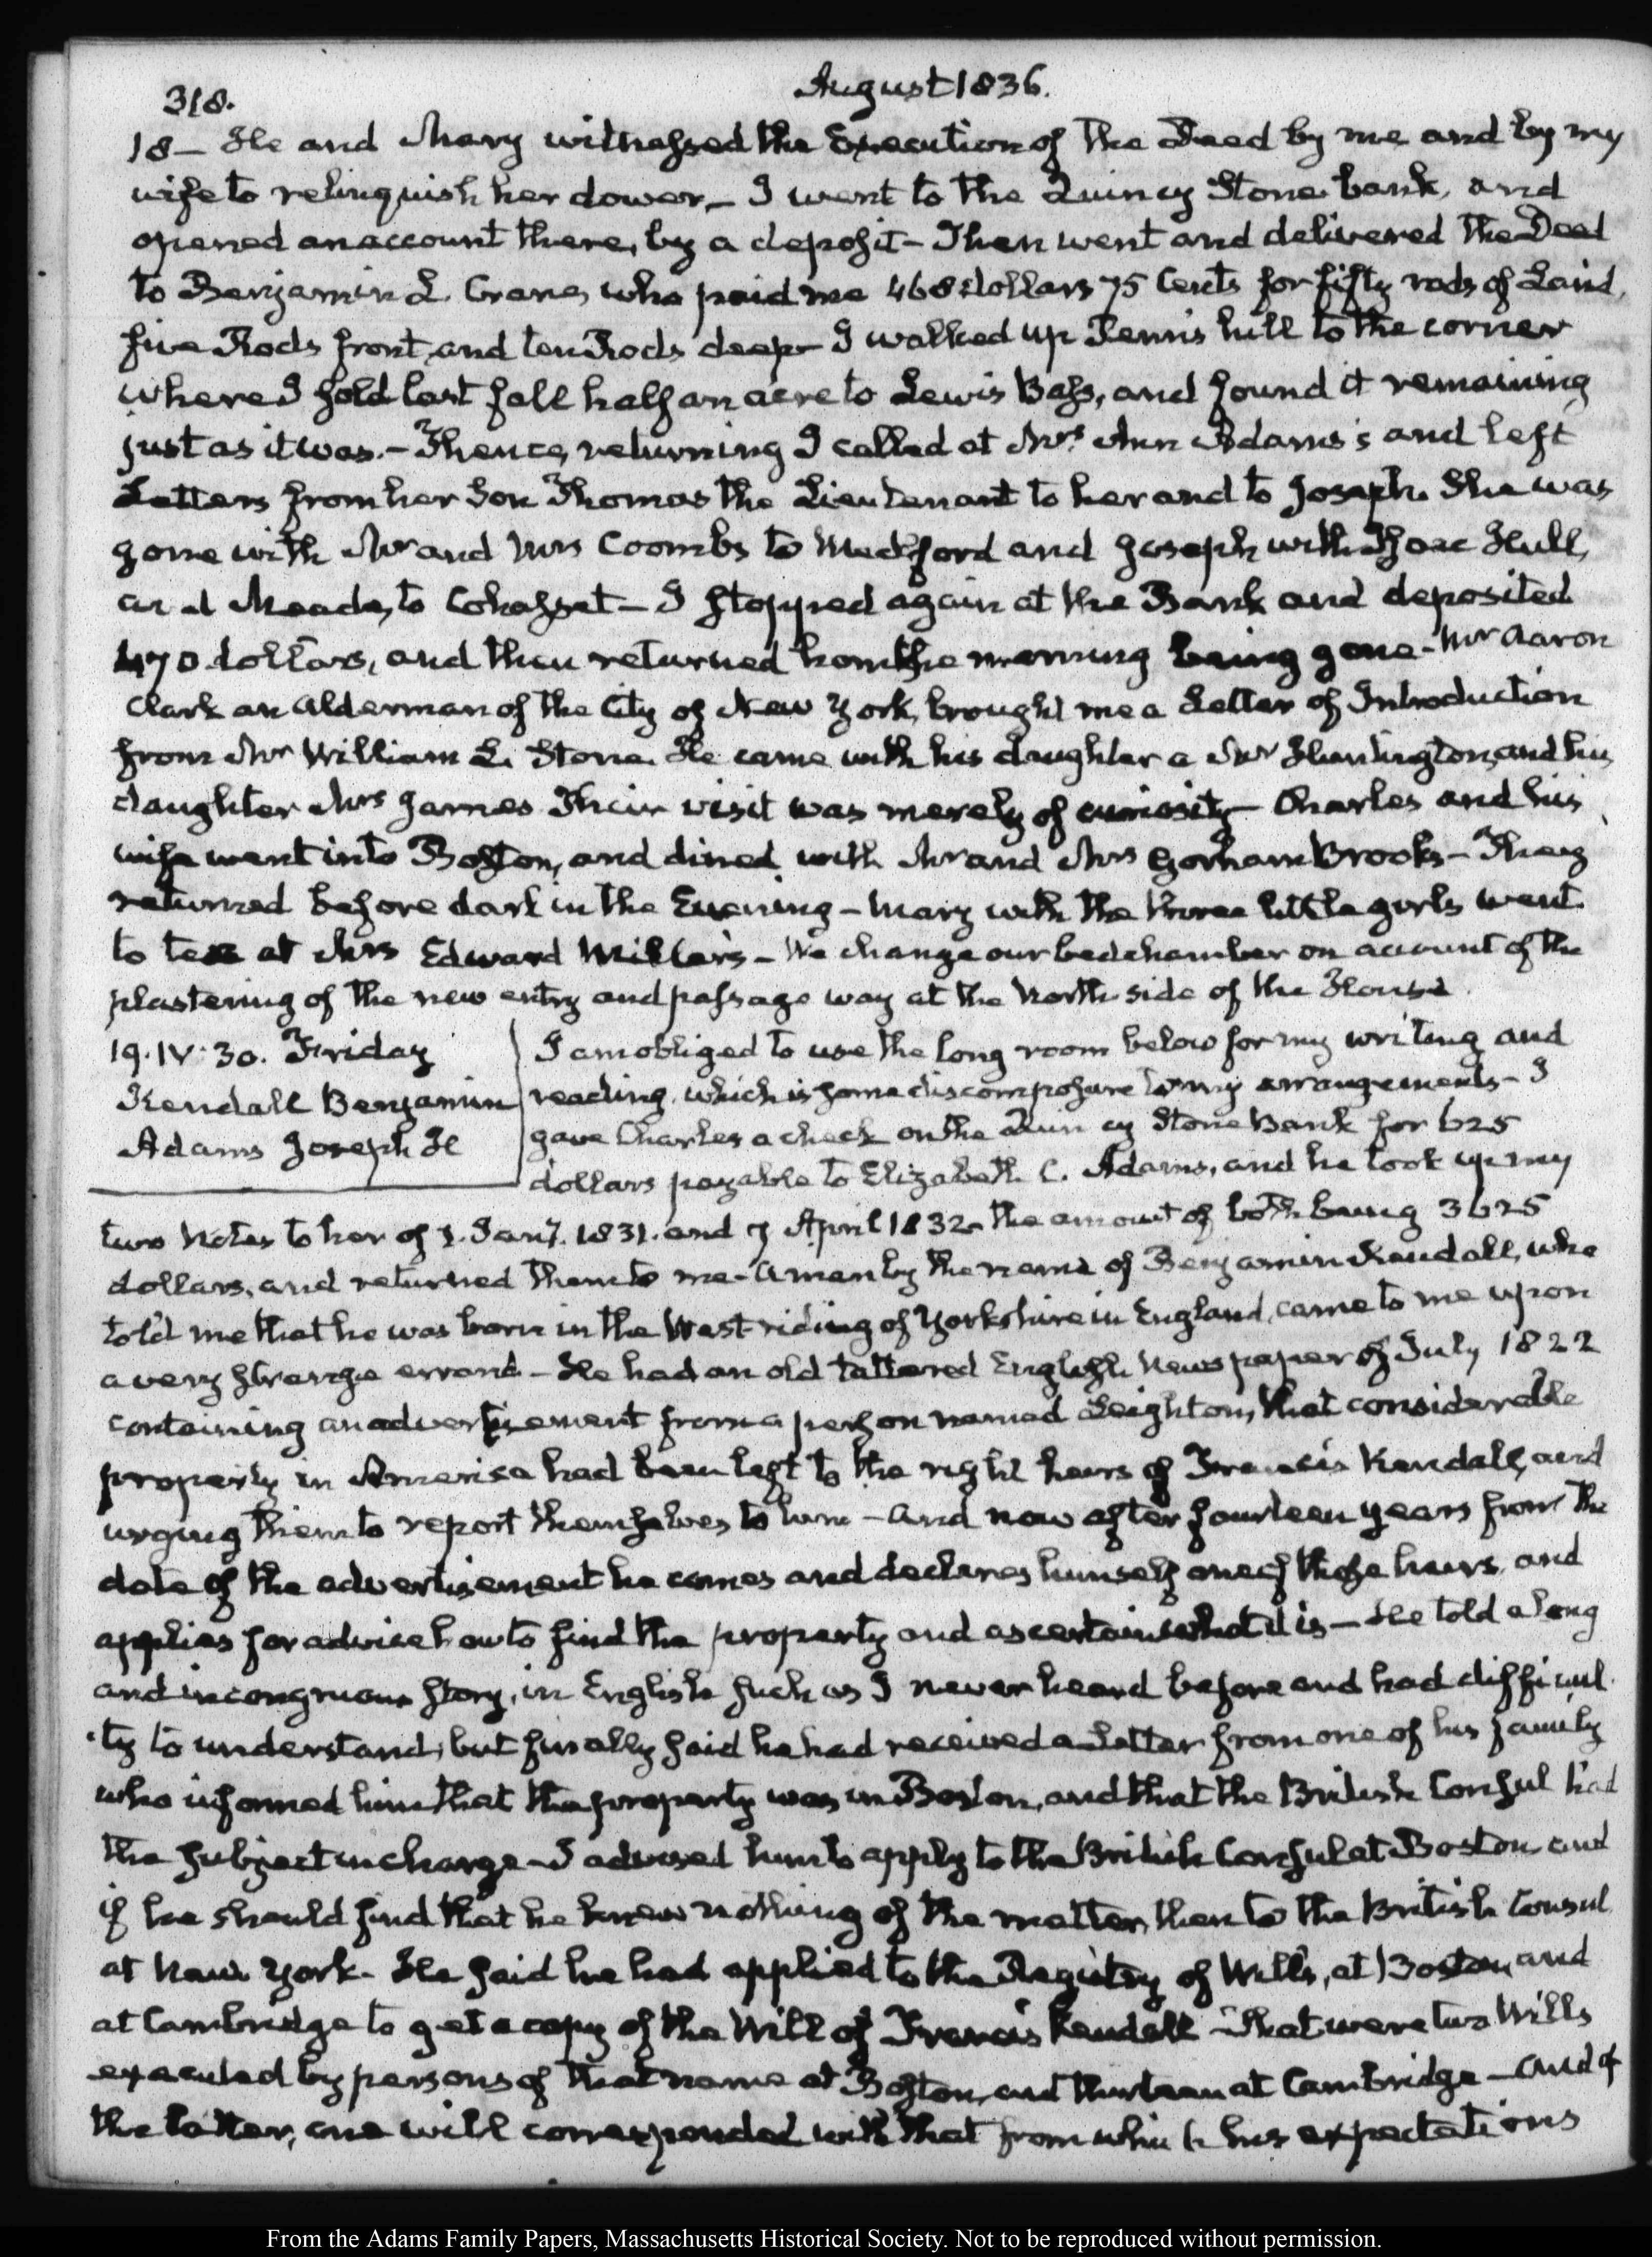 318.
August 1836.
18 — He and Mary witnessed the Execution of the Deed by me and by my
wife to relinquish her dower — I went to the Quincy Stone bank, and
opened an account there, by a deposit — Then went and delivered the Deed
to Benjamin L. Crane, who paid me 468 dollars 75 Cents for fifty rods of Land,
five Rods front, and ten Rods deep — I walked up Penn's hill to the corner
where I sold last fall half an acre to Lewis Bass, and found it remaining
just as it was. — Thence, returning I called at Mrs. Ann Adams's and left
Letters from her Son Thomas the Lieutenant to her and to Joseph. She was
gone with Mr and Mrs Coombs to Medford and Joseph with Isaac Hull,
and Meade, to Cohasset — I stopped again at the Bank and deposited
470 dollars, and then returned home the morning being gone — Mr Aaron
Clark an Alderman of the City of New York, brought me a Letter of Introduction
from Mr William L. Stone. He came with his daughter a Mr Huntington, and his
daughter Mrs James Their visit was merely of curiosity — Charles and his
wife went into Boston, and dined with Mr and Mrs Gorham Brooks — They
returned before dark in the Evening — Mary with the three little girls went
to tea at Mrs Edward Miller's — We change our bedchamber on account of the
plastering of the new entry and passage way at the North side of the House.
19. IV:30. Friday
Kendall Benjamin
Adams Joseph H
I am obliged to use the long room below for my writing and
reading, which is some discomposure to my arrangements — I
gave Charles a check on the Quincy Stone Bank for 625
dollars payable to Elizabeth C. Adams, and he took up my
two Notes to her of 1. Jany. 1831. and 7 April 1832 the amount of both being 3625
dollars, and returned them to me — A man by the name of Benjamin Kendall, who
told me that he was born in the West-riding of Yorkshire in England, came to me upon
a very strange errand — He had an old tattered English Newspaper of July 1822
containing an advertisement from a person named Leighton, that considerable
property in America had been left to the right heirs of Francis Kendall, and
urging them to report themselves to him — and now after fourteen years from the
date of the advertisement he comes and declares himself one of those heirs, and
applies for advice how to find the property and ascertain what it is — He told a long
and incongruous story, in English such as I never heard before and had difficul
-ty to understand; but finally said he had received a Letter from one of his family
who informed him that the property was in Boston, and that the British Consul had
the subject in charge — I advised him to apply to the British Consul at Boston and
if he should find that he knew nothing of the matter, then to the British Consul
at New York — He said he had applied to the Registry of Wills, at Boston and
at Cambridge to get a copy of the Will of Francis Kendall — That were two Wills
executed by persons of that name at Boston, and thirteen at Cambridge — and of
the latter, one will corresponded with that from which his expectations
From the Adams Family Papers, Massachusetts Historical Society. Not to be reproduced without permission.